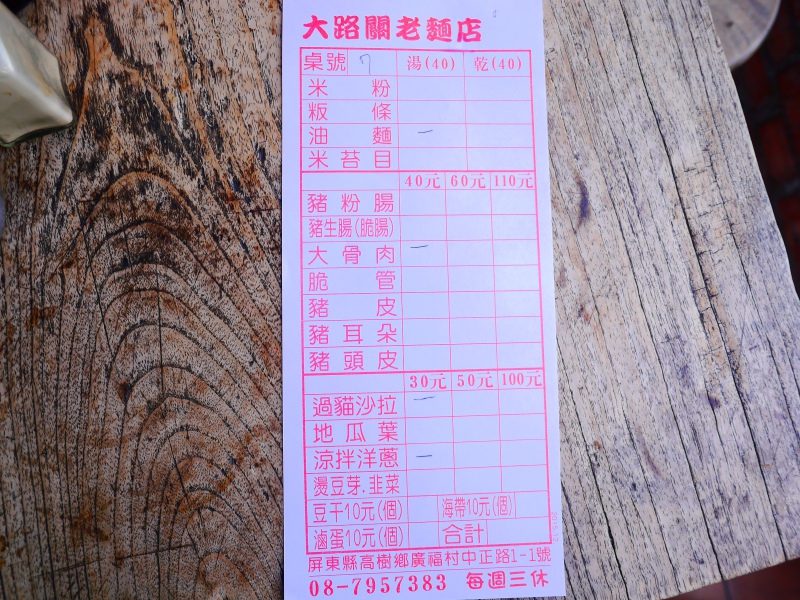 大路關老麵店
桌號 7 湯(40) 乾(40)
米粉
粄條
油麵 一
米苔目
40元 60元 110元
豬粉腸
豬生腸(脆腸)
大骨肉 一
脆管
豬皮
豬耳朵
豬頭皮
30元 50元 100元
過貓沙拉 一
地瓜葉
涼拌洋蔥 一
燙豆芽.韭菜
豆干10元(個) 海帶10元(個)
滷蛋10元(個) 合計
屏東縣高樹鄉廣福村中正路1-1號
08-7957383 每週三休